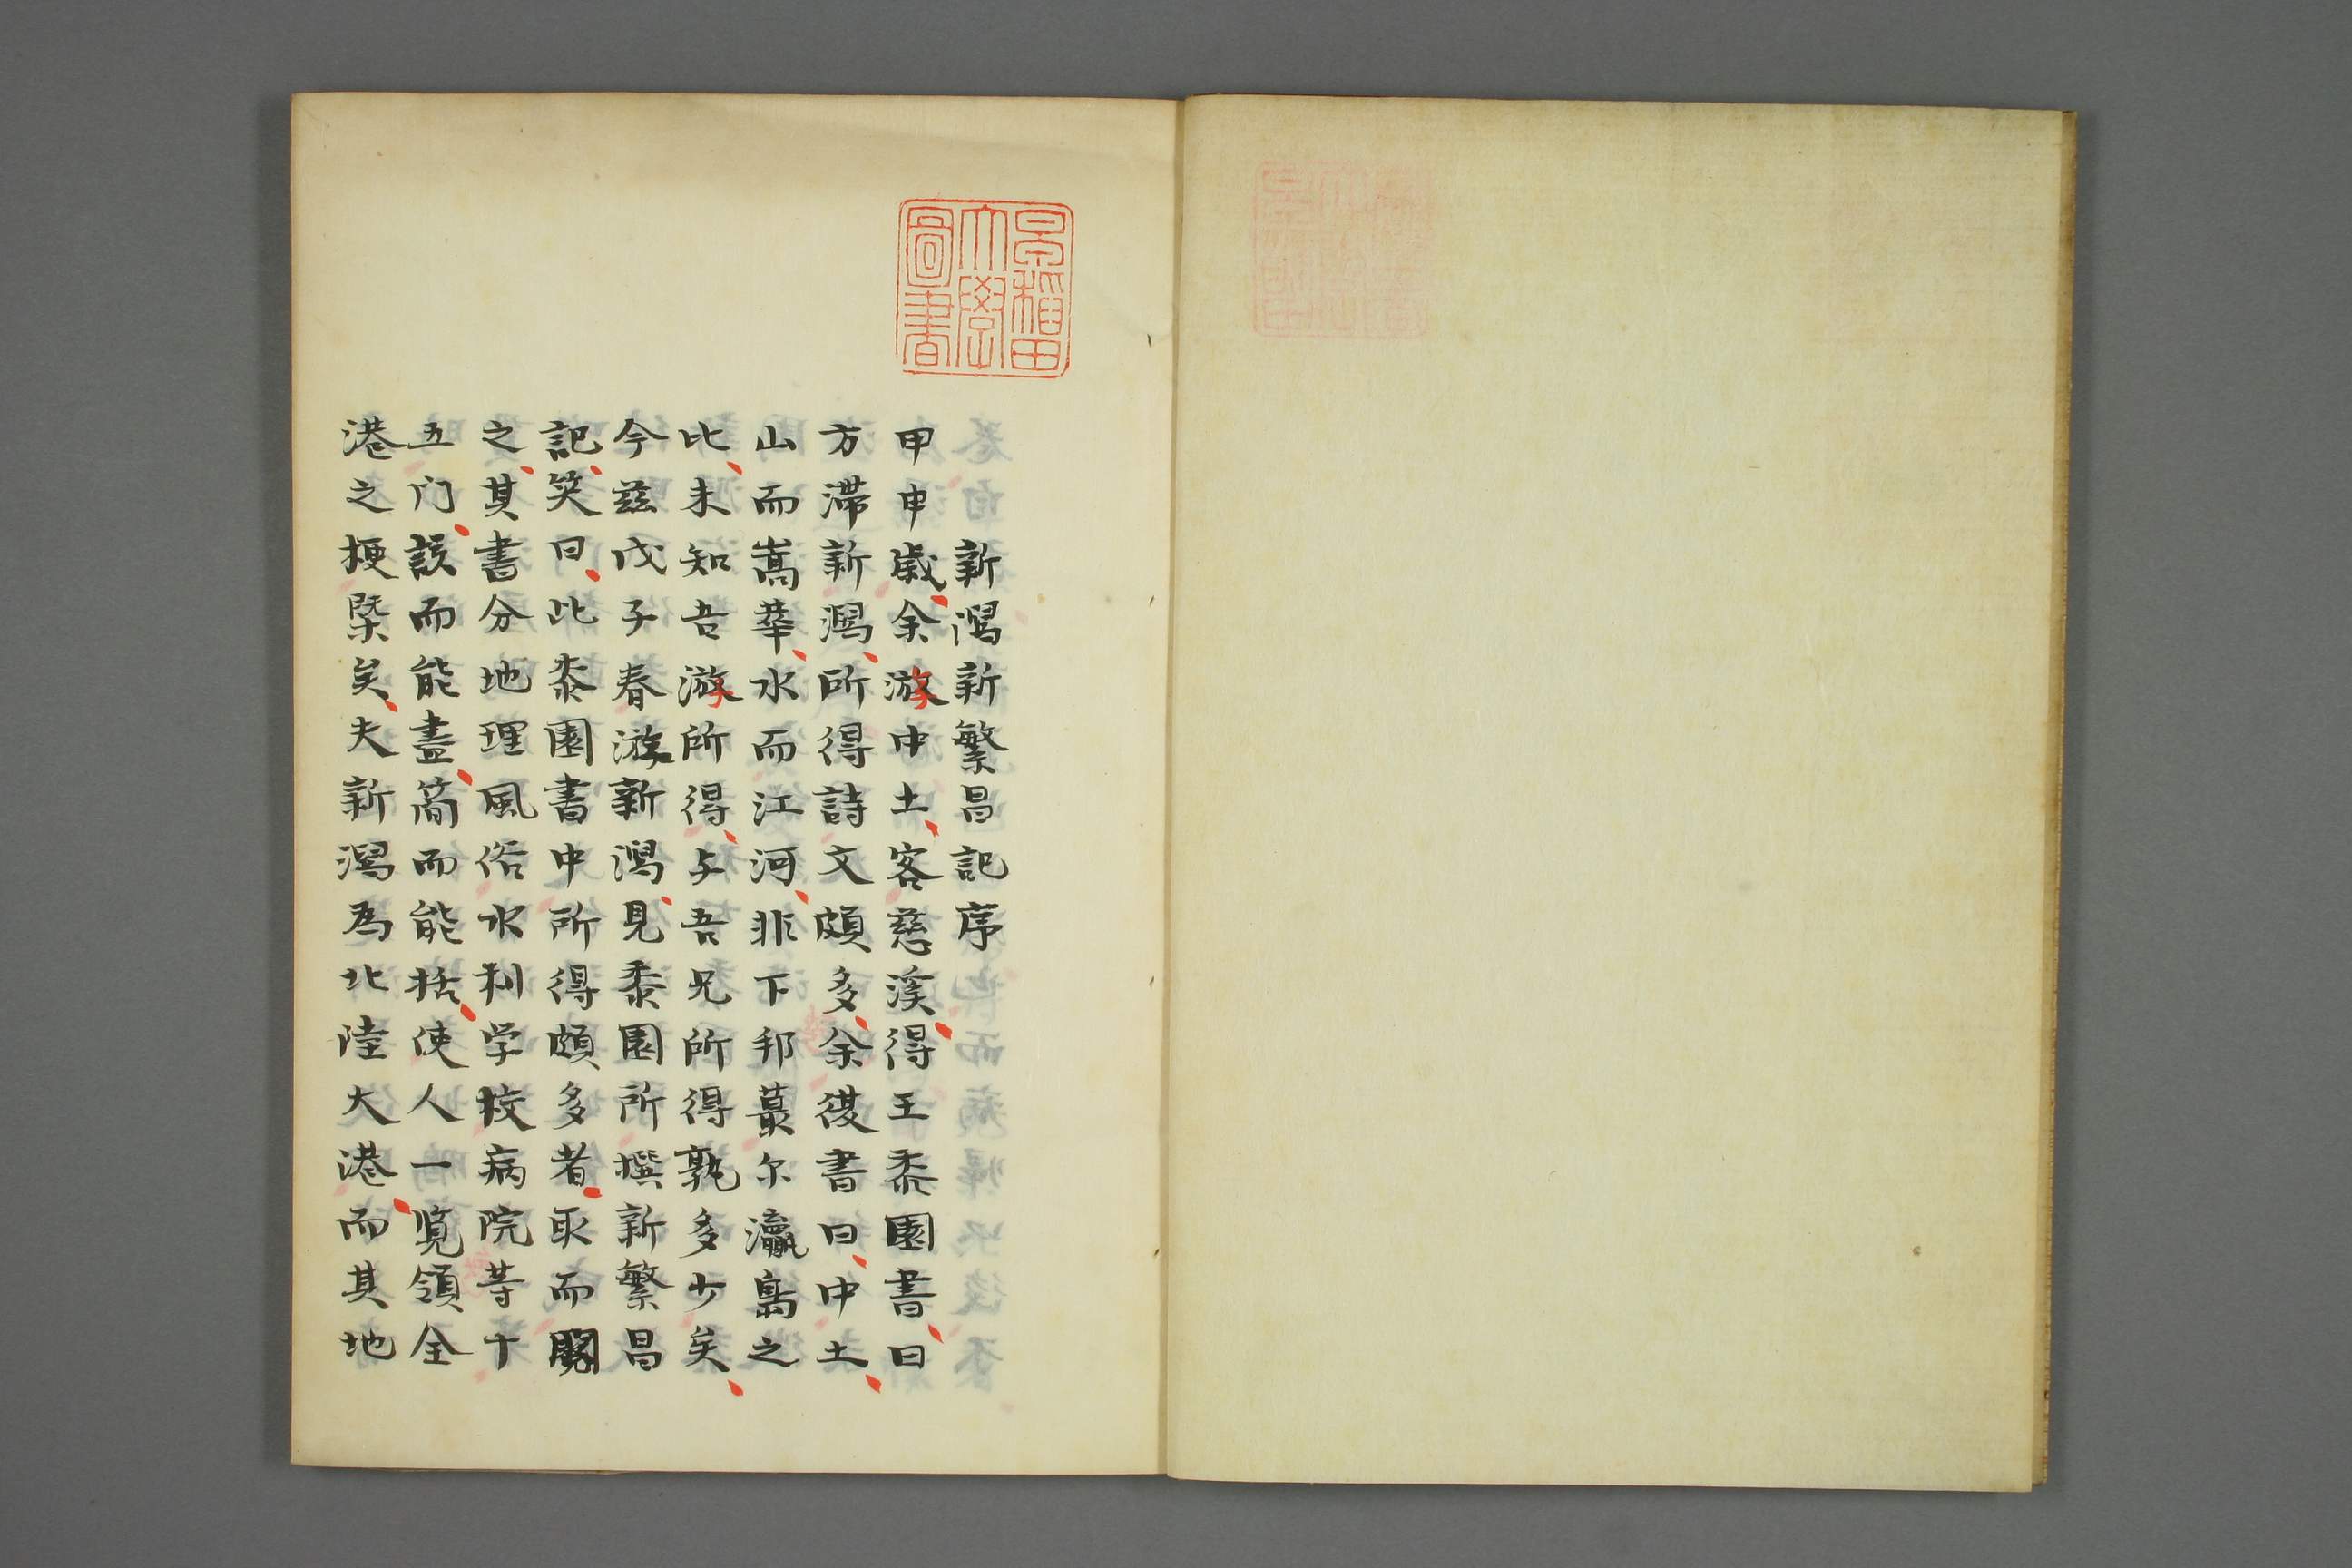 早稲田
大學
圖書
新潟新繁昌記序
甲申歳、余游中土、客慈溪、得王黍園書、曰
方滞新潟、所得詩文頗多、余復書曰、中土、
山而嵩華、水而江河、非下邦蕞尓瀛島之
比、未知吾游所得、与吾兄所得孰多少矣、
今茲戊子春游新潟、見黍園所撰新繁昌
記、笑曰、此黍園書中所得頗多者、取而閲
之、其書分地理風俗水利学校病院等十
五门、該而能盡、简而能括、使人一覧領全
港之梗槩矣、夫新潟為北陸大港、而其地